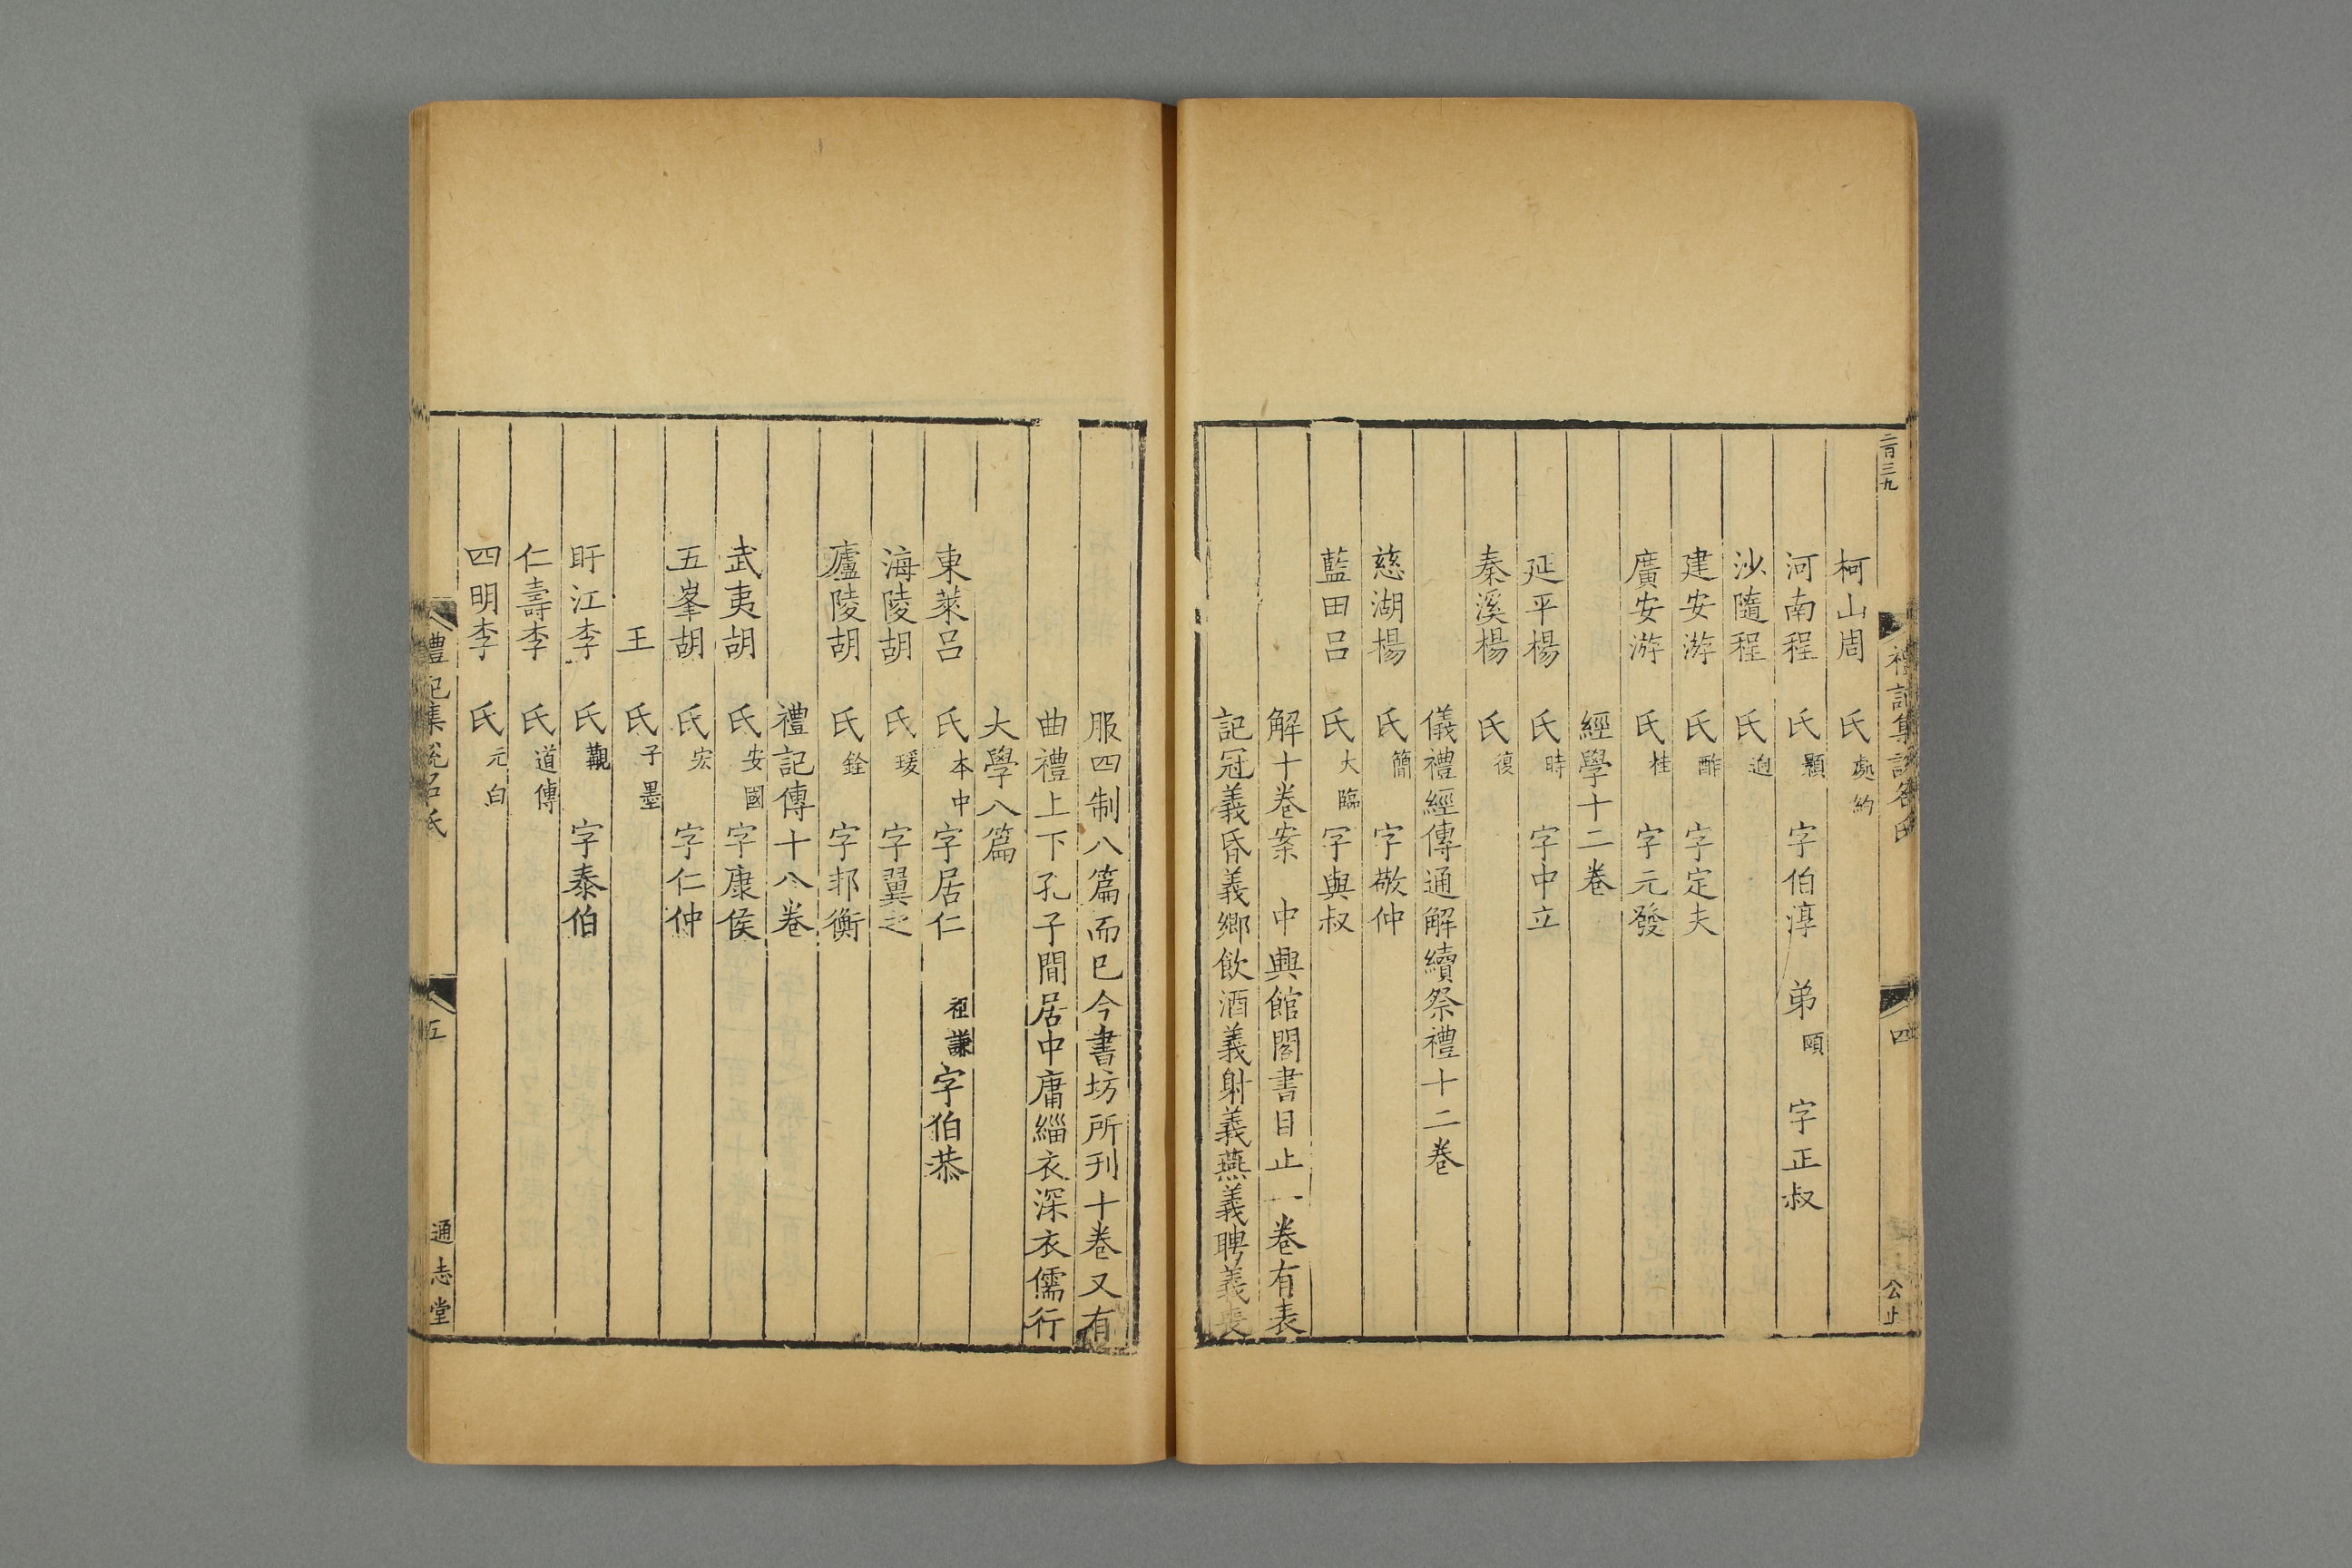 二百三九
禮記集說名氏 四 公止
柯山周 氏處約
河南程 氏顥 字伯淳 弟頤 字正叔
沙隨程 氏迥
建安游 氏酢 字定夫
廣安游 氏桂 字元發
經學十二卷
延平楊 氏時 字中立
秦溪楊 氏復
儀禮經傳通解續祭禮十二卷
慈湖楊 氏簡 字敬仲
藍田呂 氏大臨 字與叔
解十卷案 中興館閣書目止一卷有表
記冠義昏義鄉飲酒義射義燕義聘義喪
服四制八篇而已今書坊所刊十卷又有
曲禮上下孔子閒居中庸緇衣深衣儒行
大學八篇
東萊呂 氏本中 字居仁 祖謙 字伯恭
海陵胡 氏瑗 字翼之
廬陵胡 氏銓 字邦衡
禮記傳十八卷
武夷胡 氏安國 字康侯
五峯胡 氏宏 字仁仲
王 氏子墨
盱江李 氏覯 字泰伯
仁壽李 氏道傳
四明李 氏元白
禮記集說名氏 五 通志堂